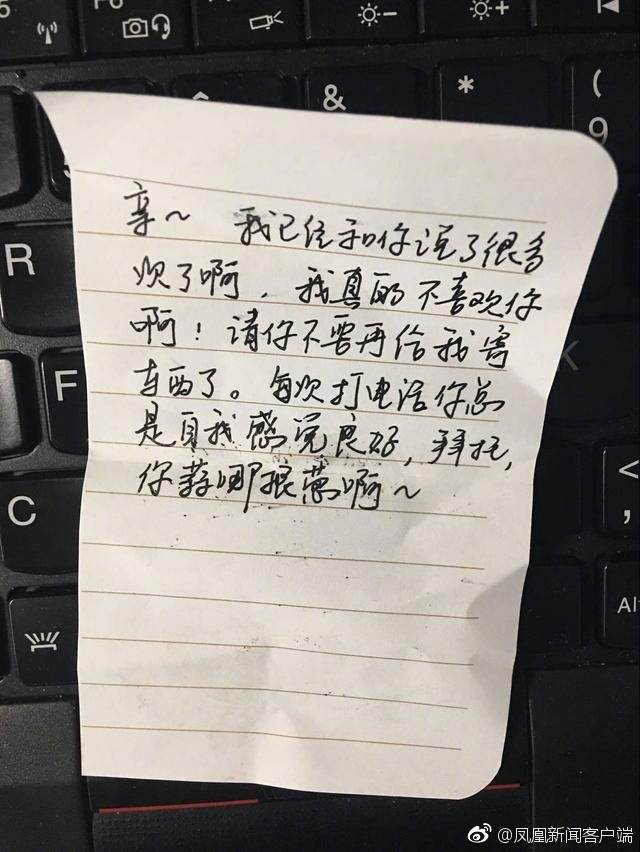 5
F6
&
*
(
9
亲~ 我已经和你说了很多
次了啊,我真的不喜欢你
啊!请你不要再给我寄
东西了。每次打电话你总
是自我感觉良好,拜托,
你蒜哪根葱啊~
R
F
K
C
<
,
Alt
@凤凰新闻客户端